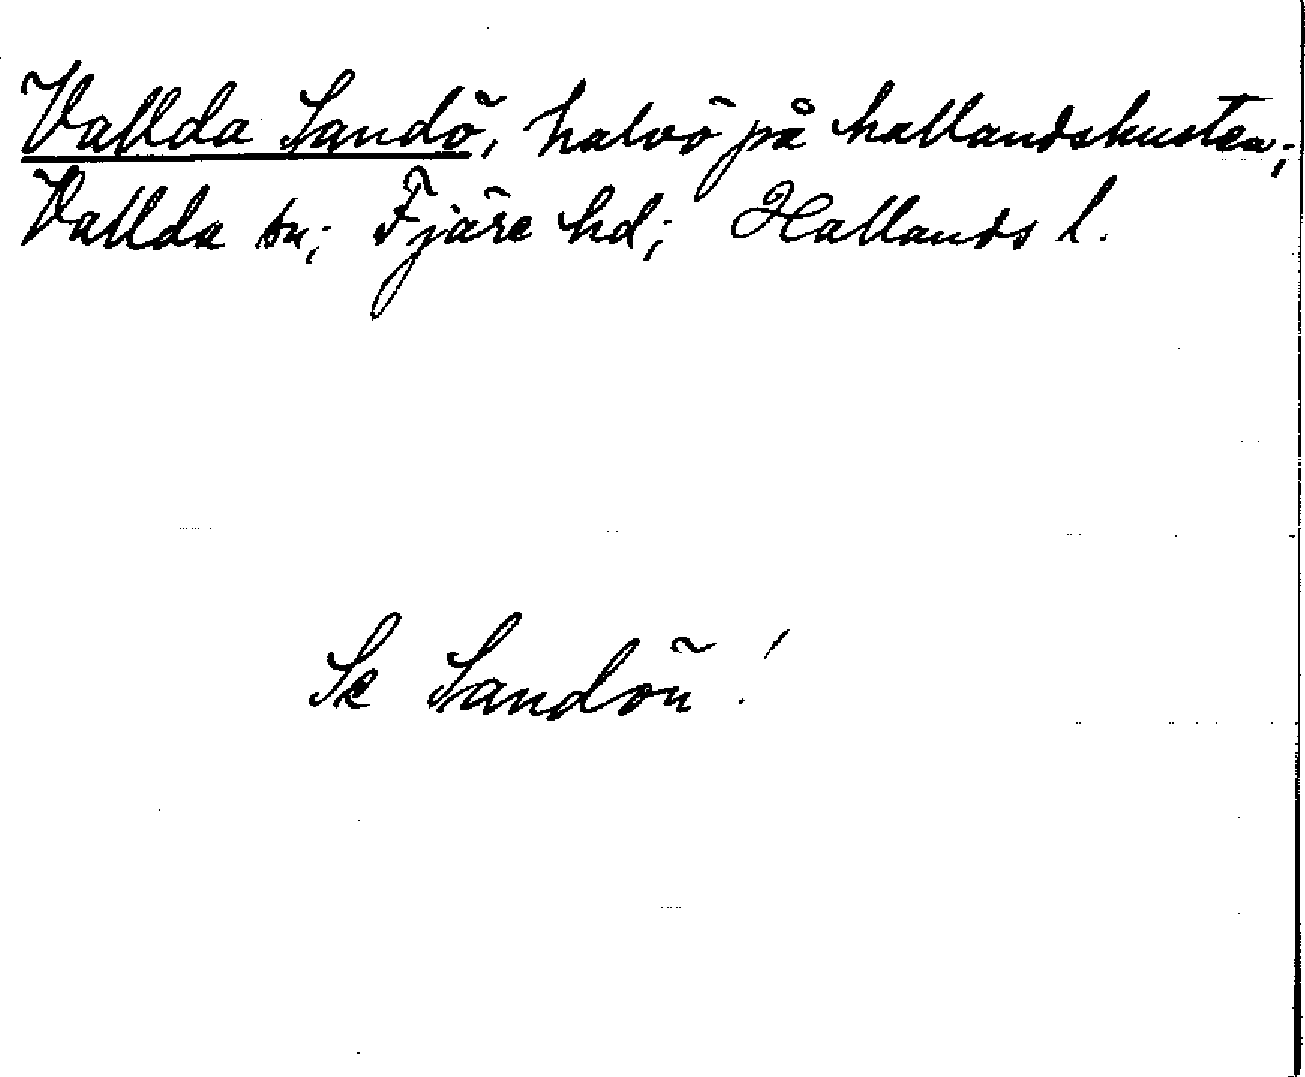 Vallda Sandö, halvö på hallandskusten;
Vallda sn; Fjäre hd; Hallands l.
Se Sandön!